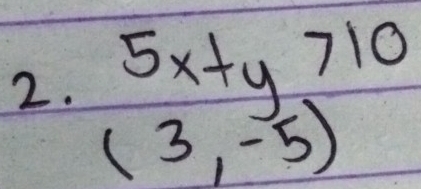 2. 5x+y >10
(3,-5)